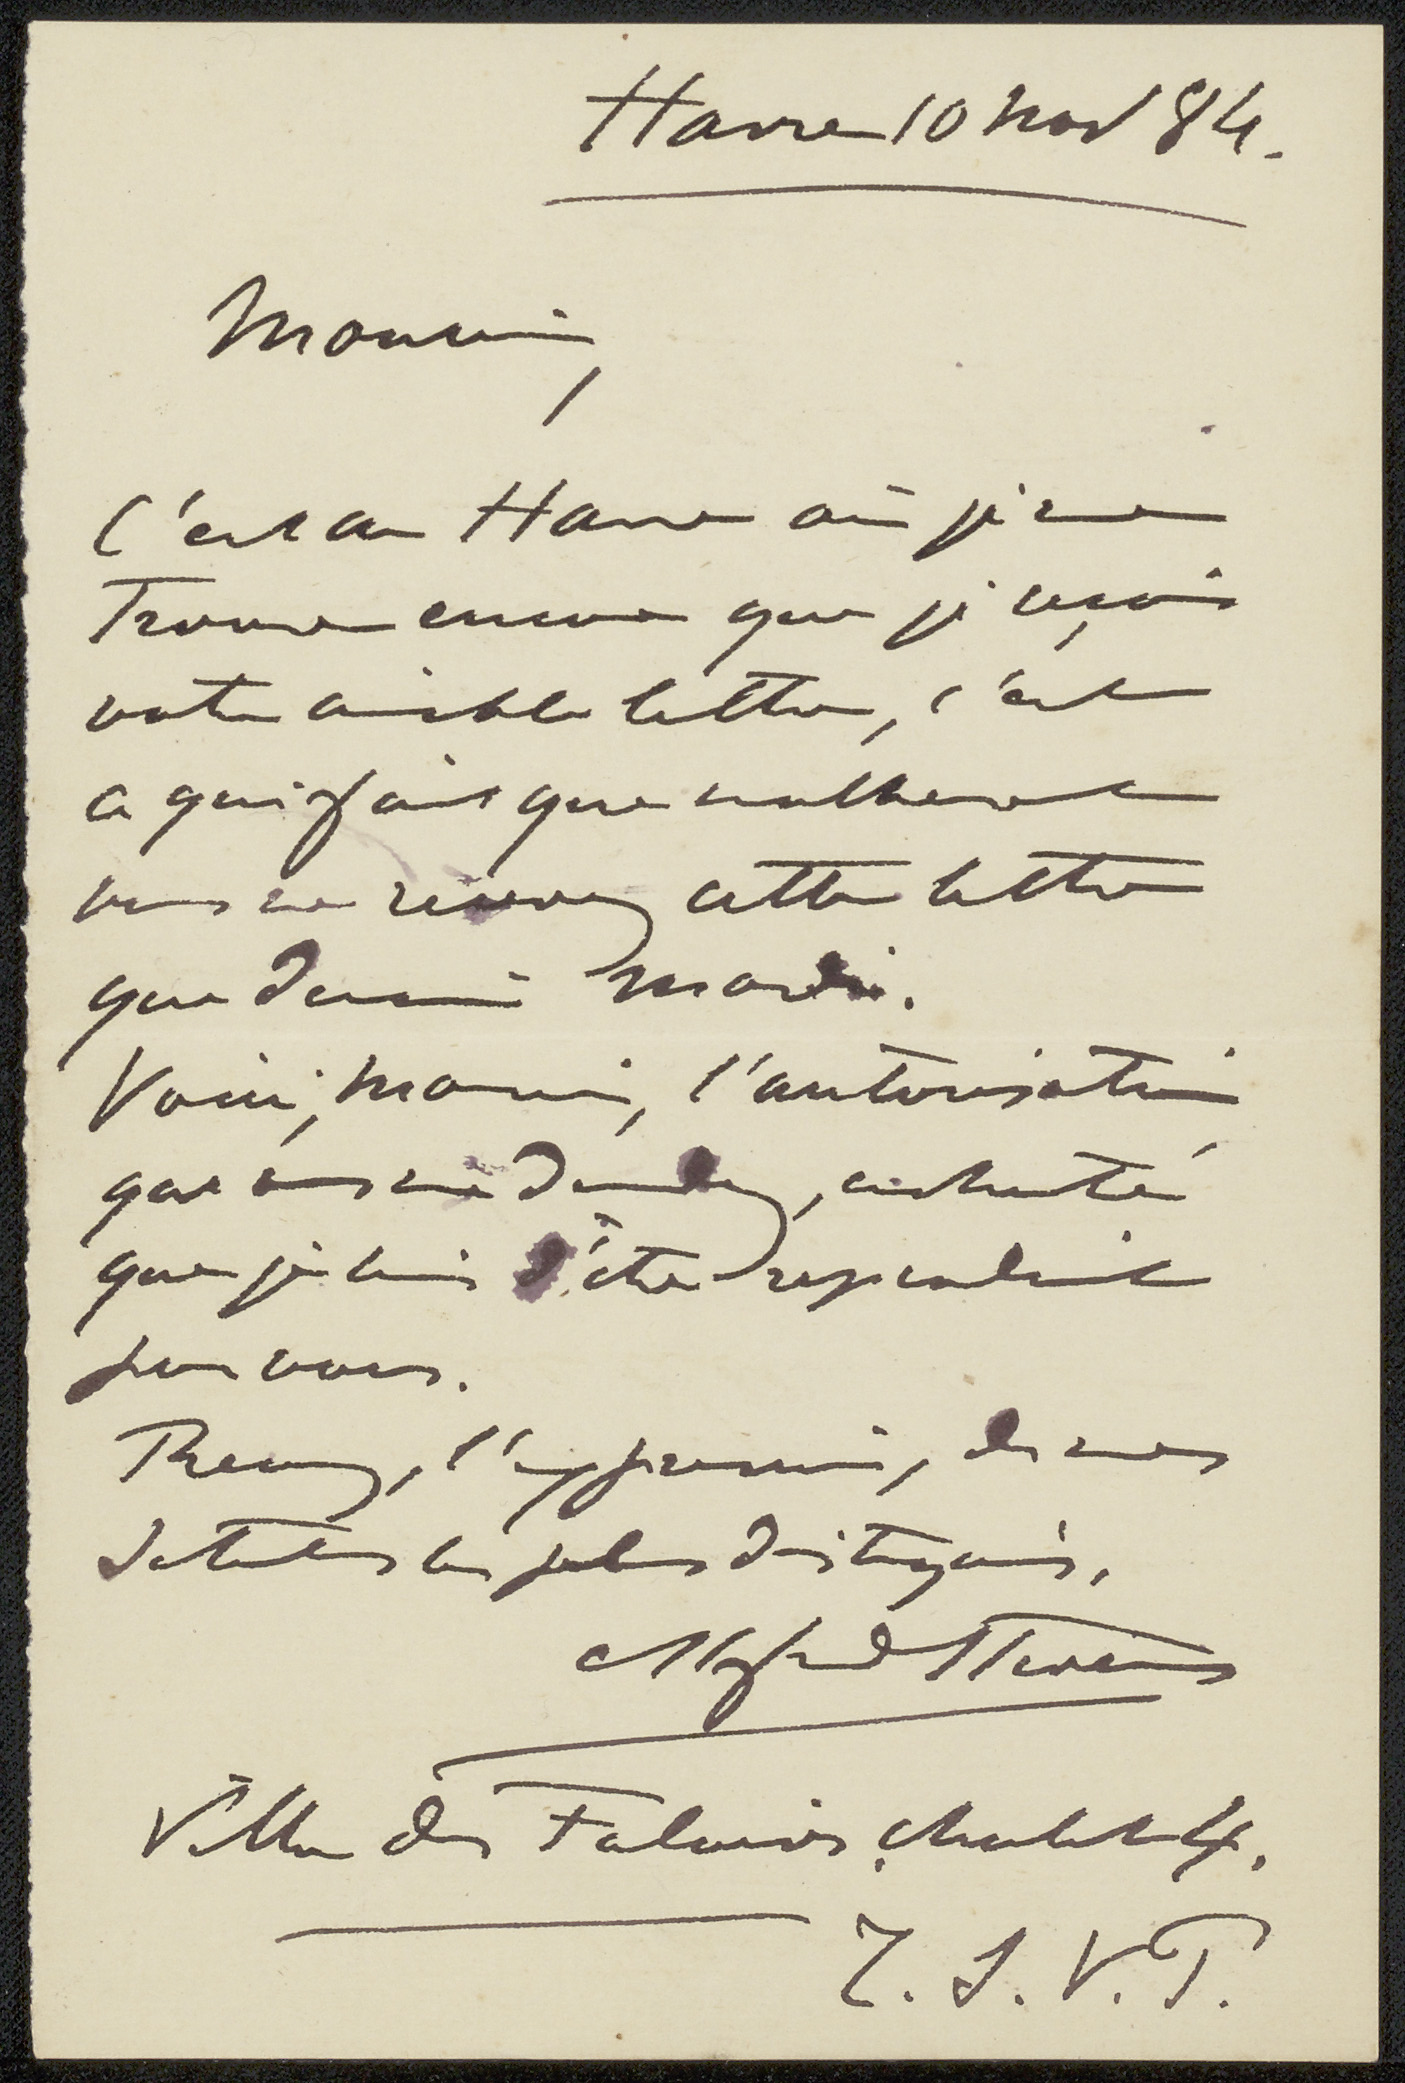 Havre 10 Nov 84.
Monsieur,
C'est au Havre où je me
trouve encore que je reçois
votre aimable lettre, c'est
ce qui fait que malheureust
vous ne recevrez cette lettre
que demain mardi.
Voici, Monsieur, l'autorisation
que vous me demandez, enchanté
que je suis d'être reproduit
par vous.
Recevez, l'expression, de mes
Salutations les plus distinguées.
Alfred Stevens
Villa des Falaises, chalet 4.
T. S. V. P.